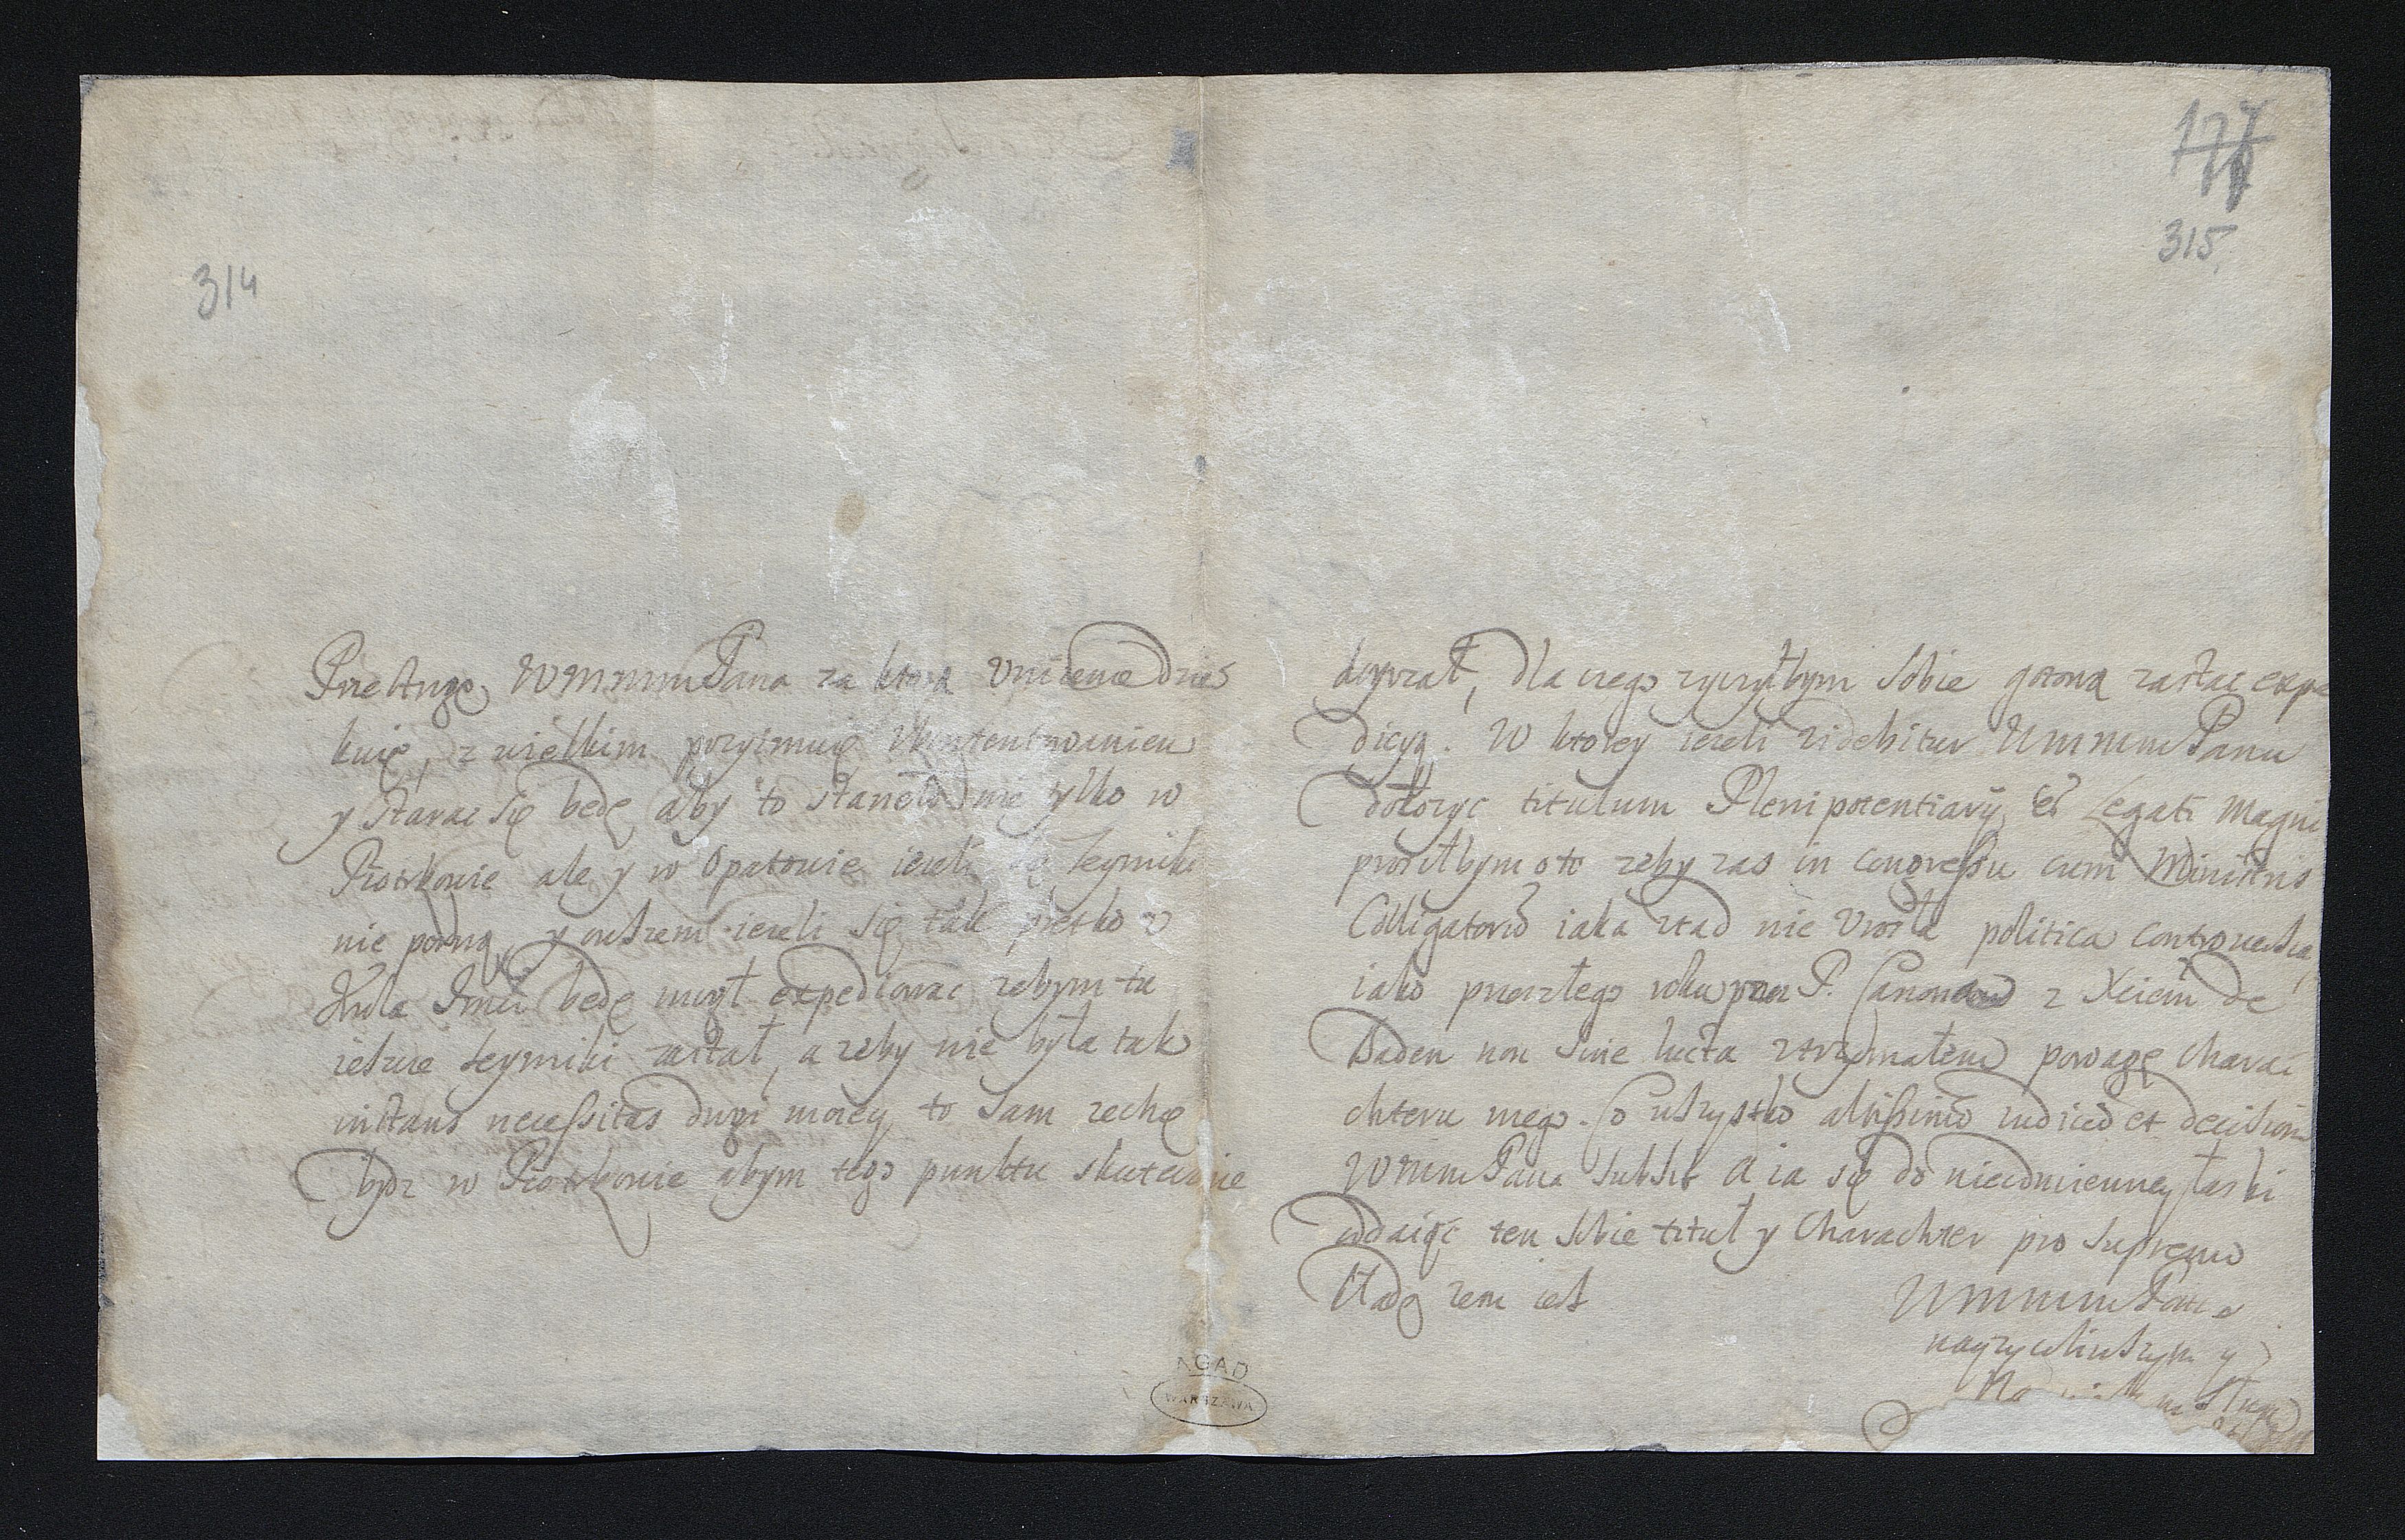 314
Przestrogę WMMMPana za ktorą Vnizenie dzie
kuię, z wielkim przyimuię Vkontentowaniem
y starac się będę aby to stanęło nie tylko w
Piotrkowie ale y w Opatowie iezeli się Seymiki
nie poydą, y owszem iezeli się tak prętko v
Krola Jmci będę mogł expediowac zebym tu
ieszcze seymiki zastał, a zeby nie była tak
instans necessitas drogi moiey to sam zechcę
bydz w Piotrkowie abym tego punktu skutecznie
177
315
doyrzał, dla czego zyczyłbym sobie gotową zastac expe
dicyą. W ktorey iezeli videbitur WMMMPanu
dołozyc titulum Plenipotentiarij et Legati Magni
prosiłbym o to zeby zas in congressu cum Ministris
Colligatorum iaka ztad nie Vrosła politica controuersia,
iako przeszłego roku przez P. z Xciem de
Baden non sine lucta vtrzymałem powagę charac
chteru mego. Co wszystko altissimo iudicio et decisioni
WMMPana subsit a ia się do nieodmienney łaski
oddaiąc ten sobie tituł y Charachter pro supremo
kładę zem iest
WMMMPana
nayzyczliwszym y
sługą
AGAD
WARSZAWA